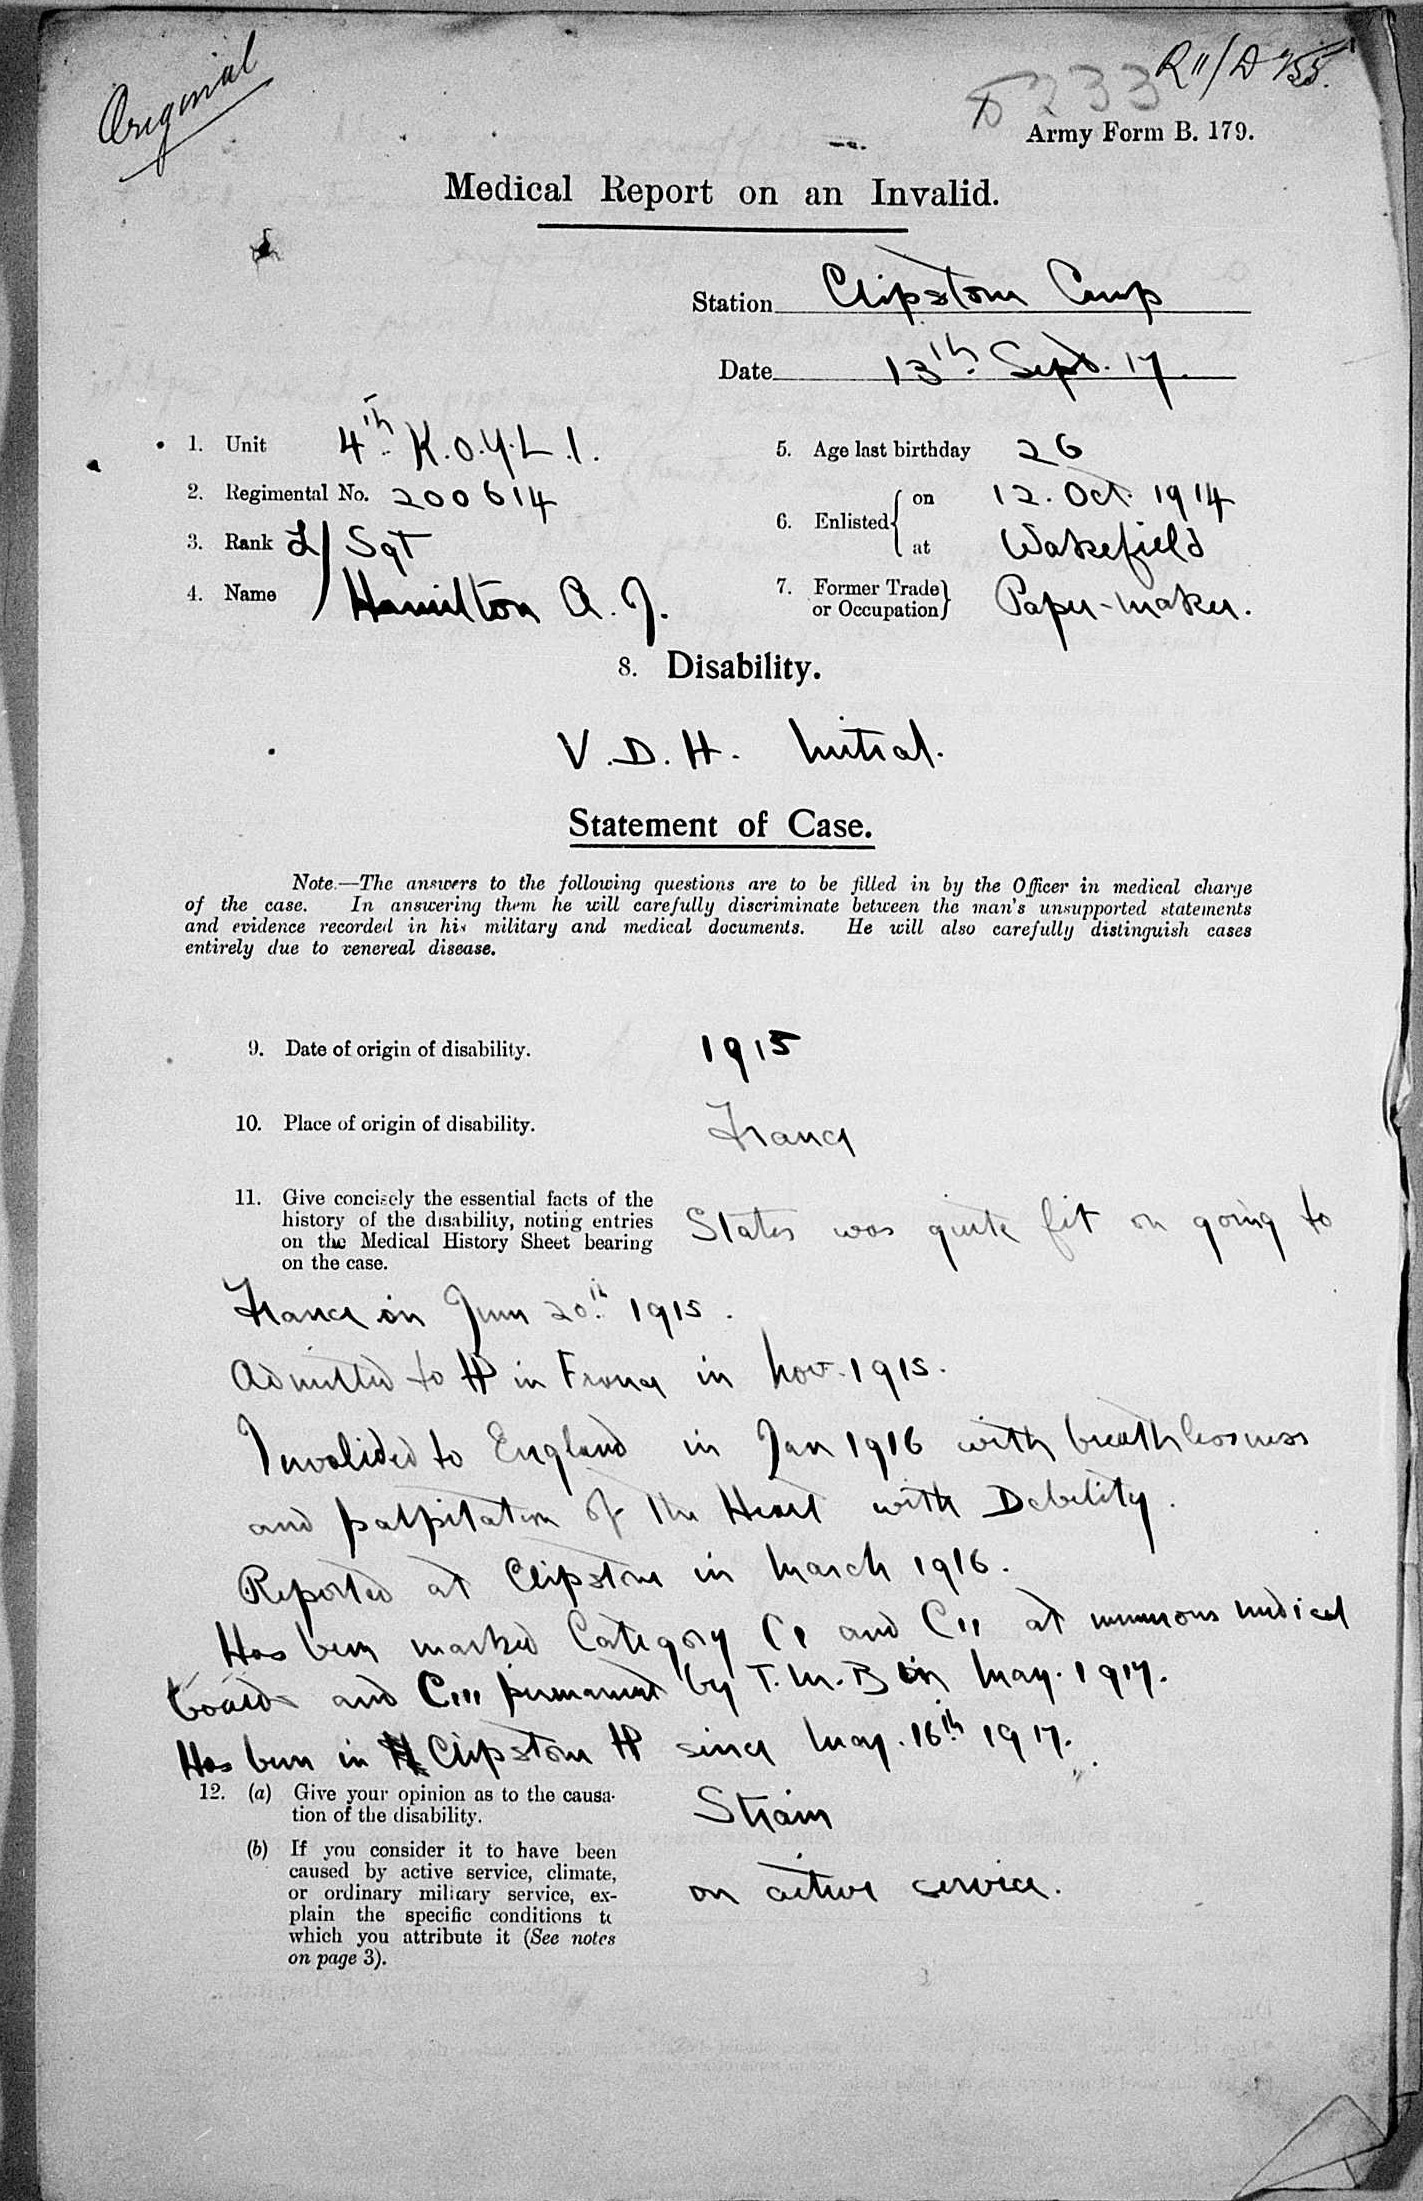 Original
5233 R 11/D 1/55.
Army Form B. 179.
Medical Report on an Invalid.
Station Clipstone Camp
Date 13th Sept. 17.
1. Unit 4th K.O.Y.L.I.
2. Regimental No. 200614
3. Rank L/Sgt
4. Name Hamilton A. J.
5. Age last birthday 26
6. Enlisted on 12. Oct. 1914
at Wakefield
7. Former Trade or Occupation Paper-maker.
8. Disability.
V.D.H. Mitral.
Statement of Case.
Note.—The answers to the following questions are to be filled in by the Officer in medical charge
of the case. In answering them he will carefully discriminate between the man's unsupported statements
and evidence recorded in his military and medical documents. He will also carefully distinguish cases
entirely due to venereal disease.
9. Date of origin of disability. 1915
10. Place of origin of disability. France
11. Give concisely the essential facts of the
history of the disability, noting entries
on the Medical History Sheet bearing
on the case.
States was quite fit on going to
France on June 20th 1915.
Admitted to H in France in Nov. 1915.
Invalided to England in Jan 1916 with breathlessness
and palpitation of the Heart with Debility.
Reported at Clipstone in March 1916.
Has been marked Category Ci and Cii at numerous medical
boards and Ciii permanent by T.M.B in May. 1917.
Has been in Clipstone H since May. 16th 1917.
12. (a) Give your opinion as to the causa-
tion of the disability.
Strain
(b) If you consider it to have been
caused by active service, climate,
or ordinary military service, ex-
plain the specific conditions to
which you attribute it (See notes
on page 3).
on active service.